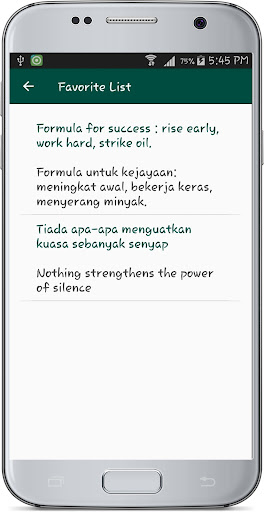 75% 5:45 PM
Favorite List
Formula for success : rise early,
work hard, strike oil.
Formula untuk kejayaan:
meningkat awal, bekerja keras,
menyerang minyak.
Tiada apa-apa menguatkan
kuasa sebanyak senyap
Nothing strengthens the power
of silence